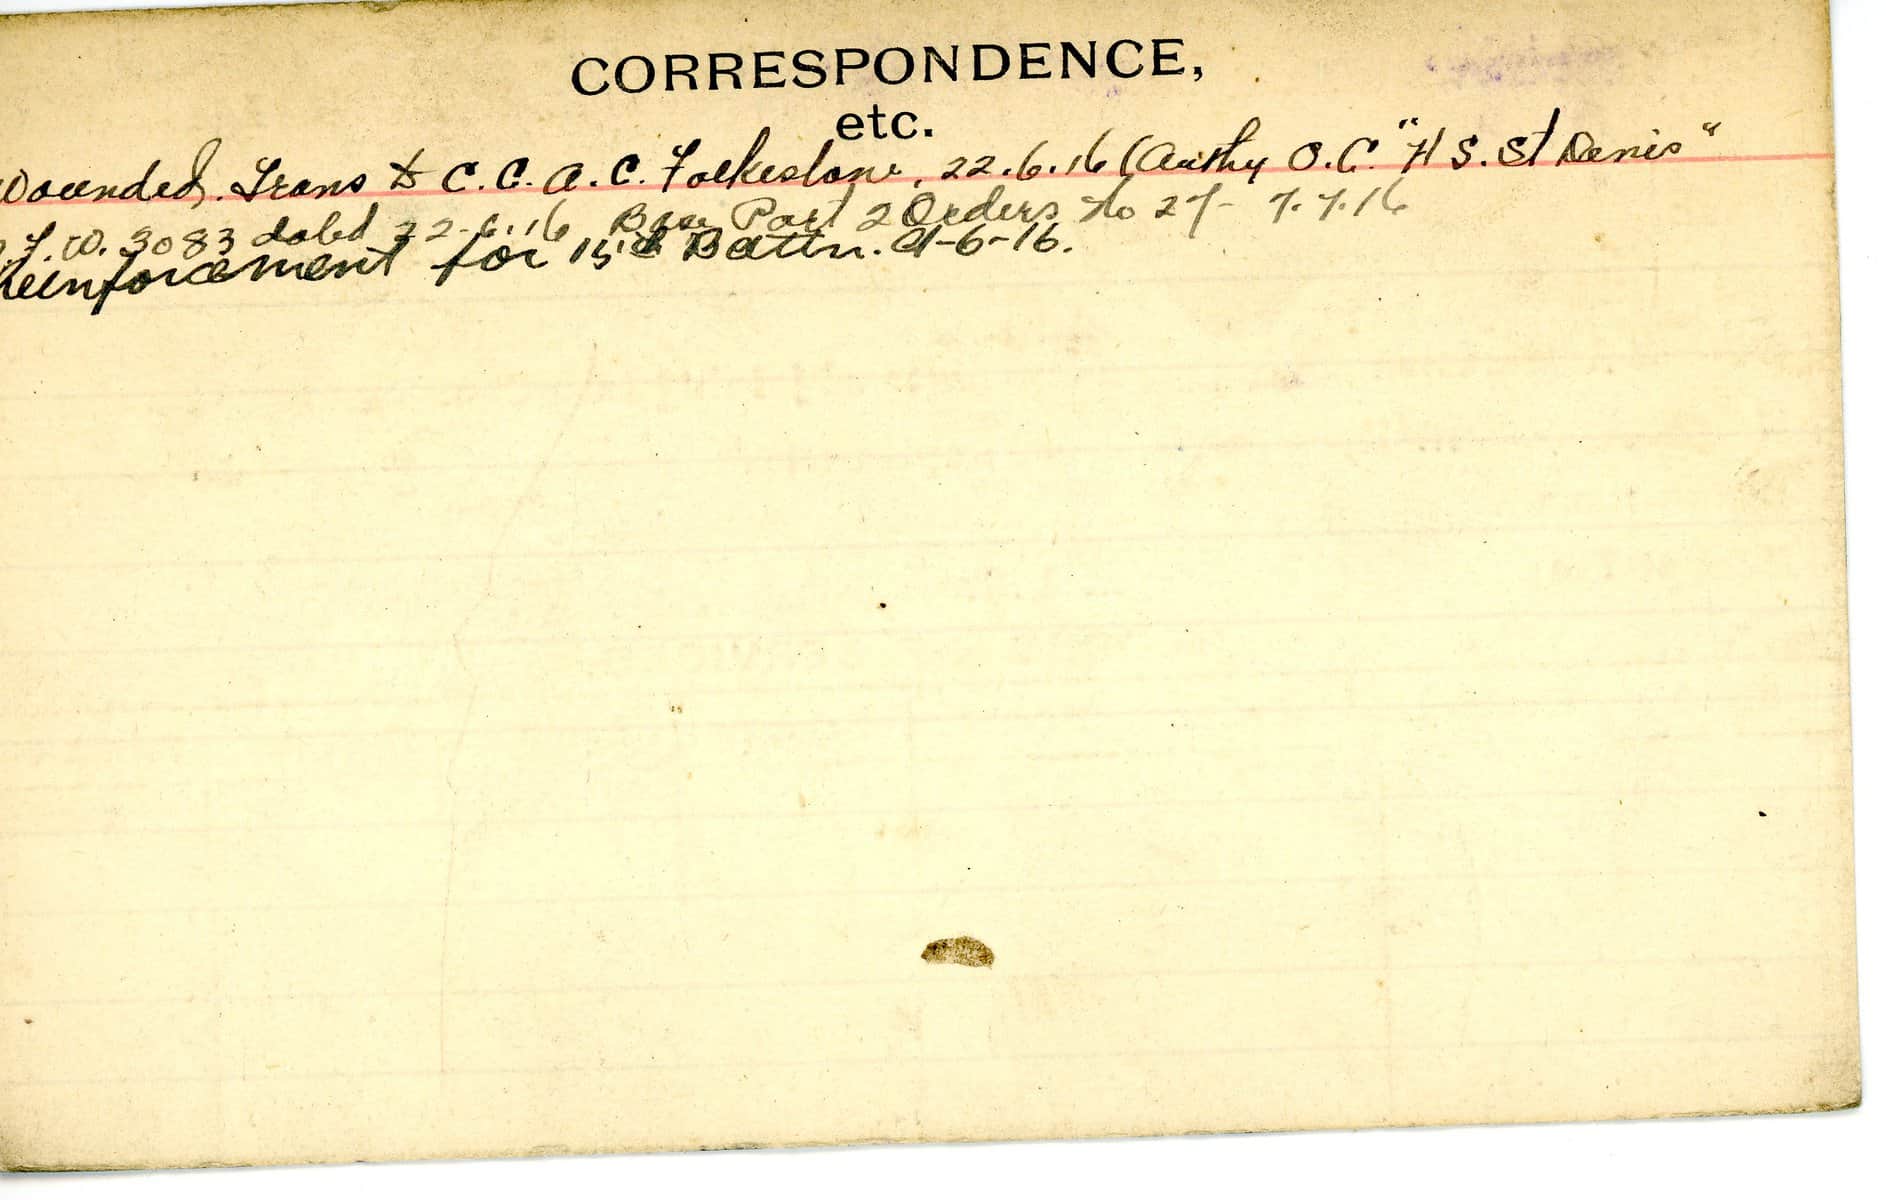 CORRESPONDENCE,
etc.
Wounded. Trans to C.C.A.C. Folkestone, 22.6.16 (Authy O.C. "H S. St Denis"
F. W. 3083 dated 22.6.16 Base Part 2 Orders No 27- 7.7.16
Reinforcement for 15th Battn. 4-6-16.